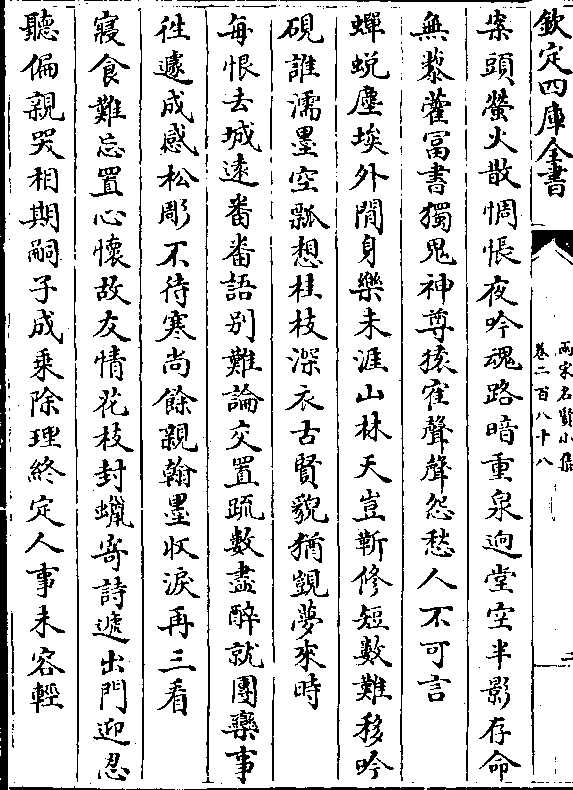 欽定四庫全書
兩宋名賢小集
卷二百八十八
二
案頭螢火散惆悵夜吟魂路暗重泉逈堂空半影存命
無藜藿冨書獨鬼神尊猿寉聲聲怨愁人不可言
蟬蛻塵埃外閒身樂未涯山林天豈靳修短數難移吟
硯誰濡墨空瓢想桂枝深衣古賢貌猶覬夢來時
每恨去城遠番番語别難論交置疏數盡醉就團欒事
徃遽成感松彫不待寒尚餘親翰墨収淚再三看
寢食難忘置心懷故友情花枝封蠟寄詩遞出門迎忍
聽偏親哭相期嗣子成乗除理終定人事未容輕